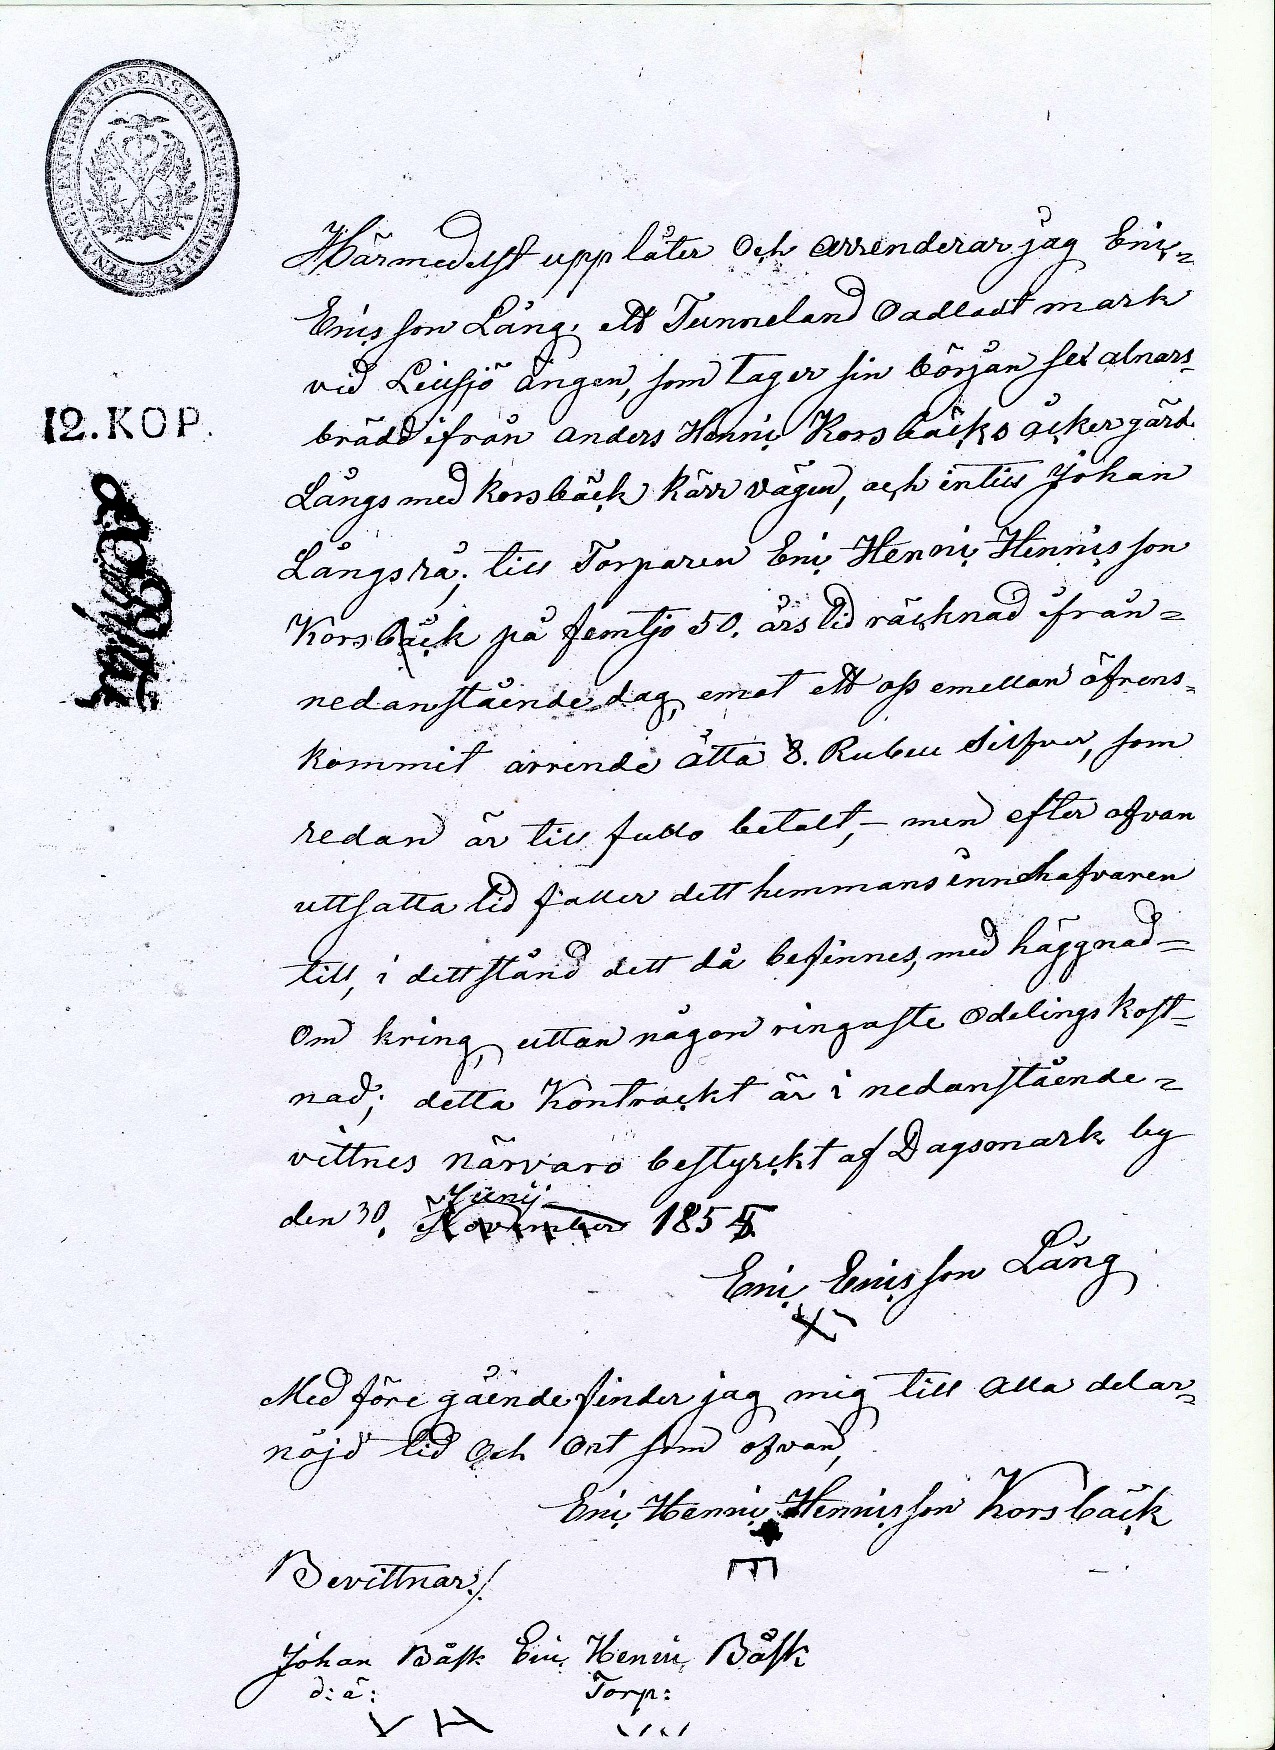 FINANCE EXPEDITIONENS CHARTÆ
12. KOP.
Härmedelst upplåter Och arrenderar jag Eric
Ericsson Lång, ett Tunneland Oadladt mark
vid Leusjö ängen, som tager sin början sex alnars
brädd ifrån Anders Henric Korsbäcks åckergärd
Långsmed Korsbäck kärr vägen, och intill Johan
Långs rå; till Torparen Eric Henric Hennicsson
Korsbäck på femtjo 50. års tid räcknad ifrån=
nedanstående dag, emot ett oss emellan öfrens-
kommit arrende åtta 8. Rubell Silfver, som
redan är till fullo betalt,- men efter ofvan
uttsatta tid faller dett hemmans innehafvaren
till, i dett stånd dett då befinnes, med häggnad=
Om kring, uttan någon ringaste Odelings kost-
nad; detta Kontrackt är i nedanstående=
vittnes närvaro bestyrckt af Dagsmark by
Junij
den 30. November 185
Eric Ericsson Lång
Med före gående finder jag mig till alla delar=
nöjd tid och Ort som ofvan,
Eric Henric Hennicsson Korsbäck
Bevittnar/.
Johan Båsk Eric Henric Båsk
d: ä: Torp: